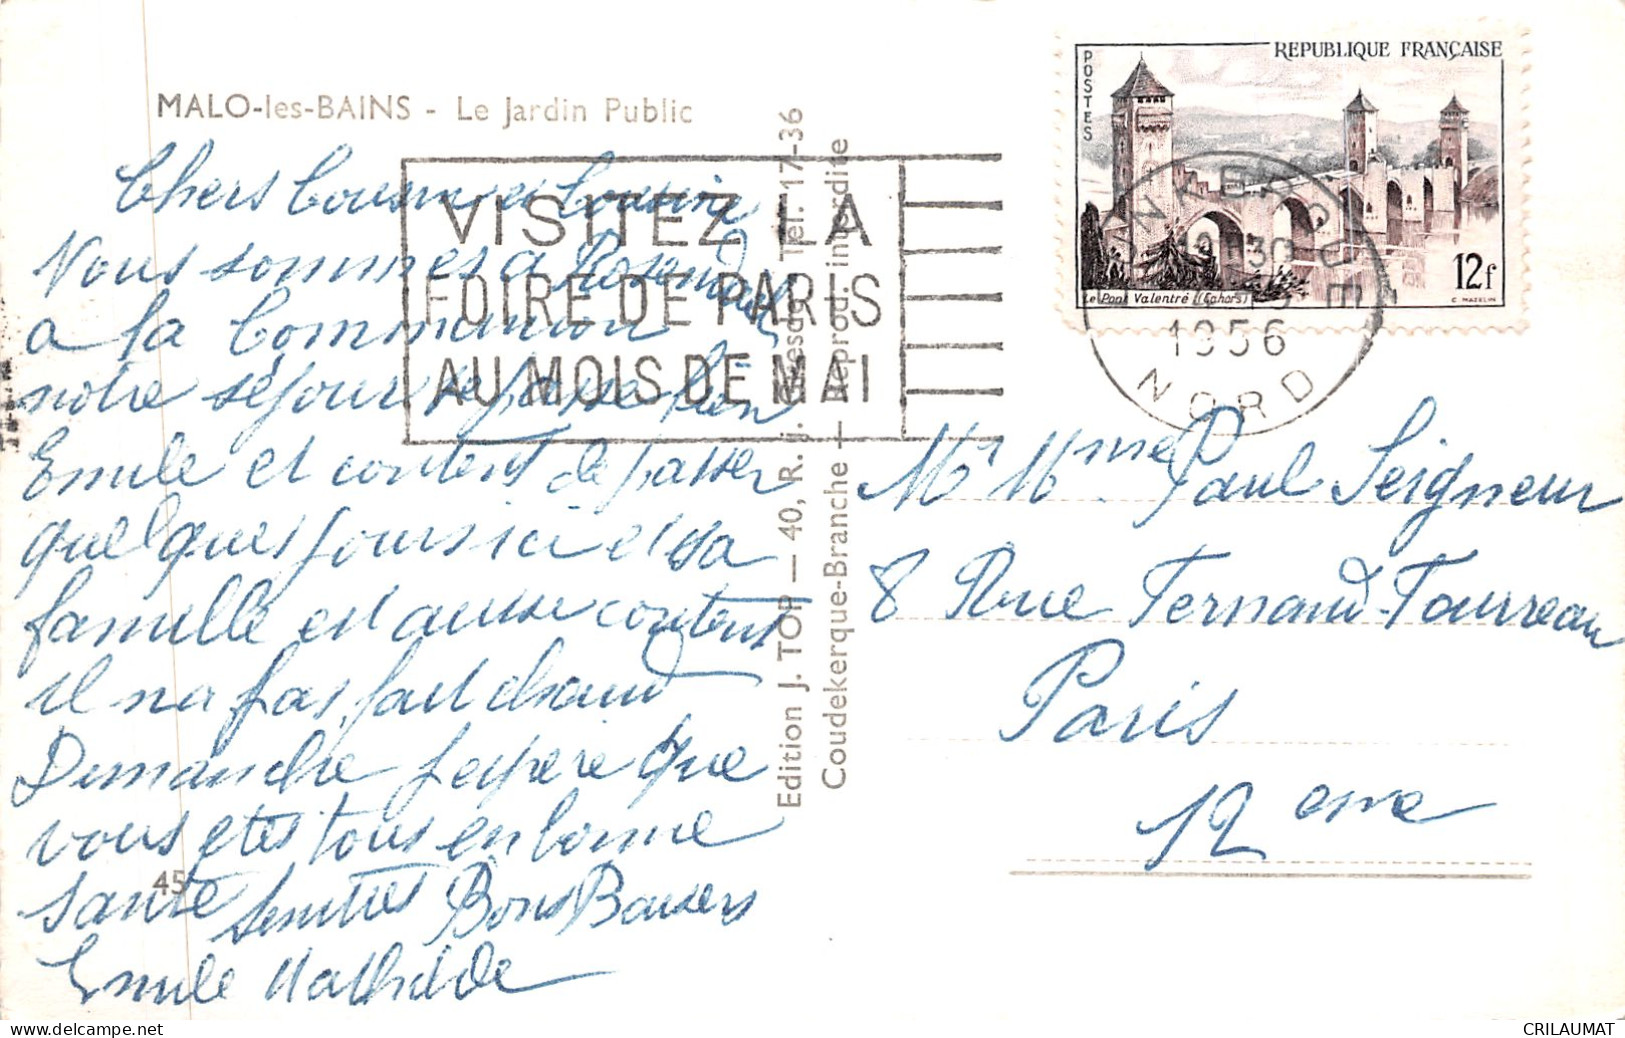 MALO-les-BAINS - Le Jardin Public
Chers Cousin et Cousine
Nous sommes a Rosendael
a la Communion
notre séjour se passe bien
Emile et content de passer
quelques jours ici et sa
famille est ausse content
il na pas fait chaud
Dimanche jespere que
vous etes tous en bonne
santé Bons Baisers
Emile Mathilde
45
VISITEZ LA
FOIRE DE PARIS
AU MOIS DE MAI
Edition J. TOP — 40, R. J. Tél. 17-36
Coudekerque-Branche — Reprod. interdite
POSTES
REPUBLIQUE FRANÇAISE
Le Pont Valentré (Cahors)
12f
C. MAZELIN
DUNKERQUE
1956
NORD
Mr Mme Paul Seigneur
8 Rue Fernand-Fourreau
Paris
12 eme
CRILAUMAT